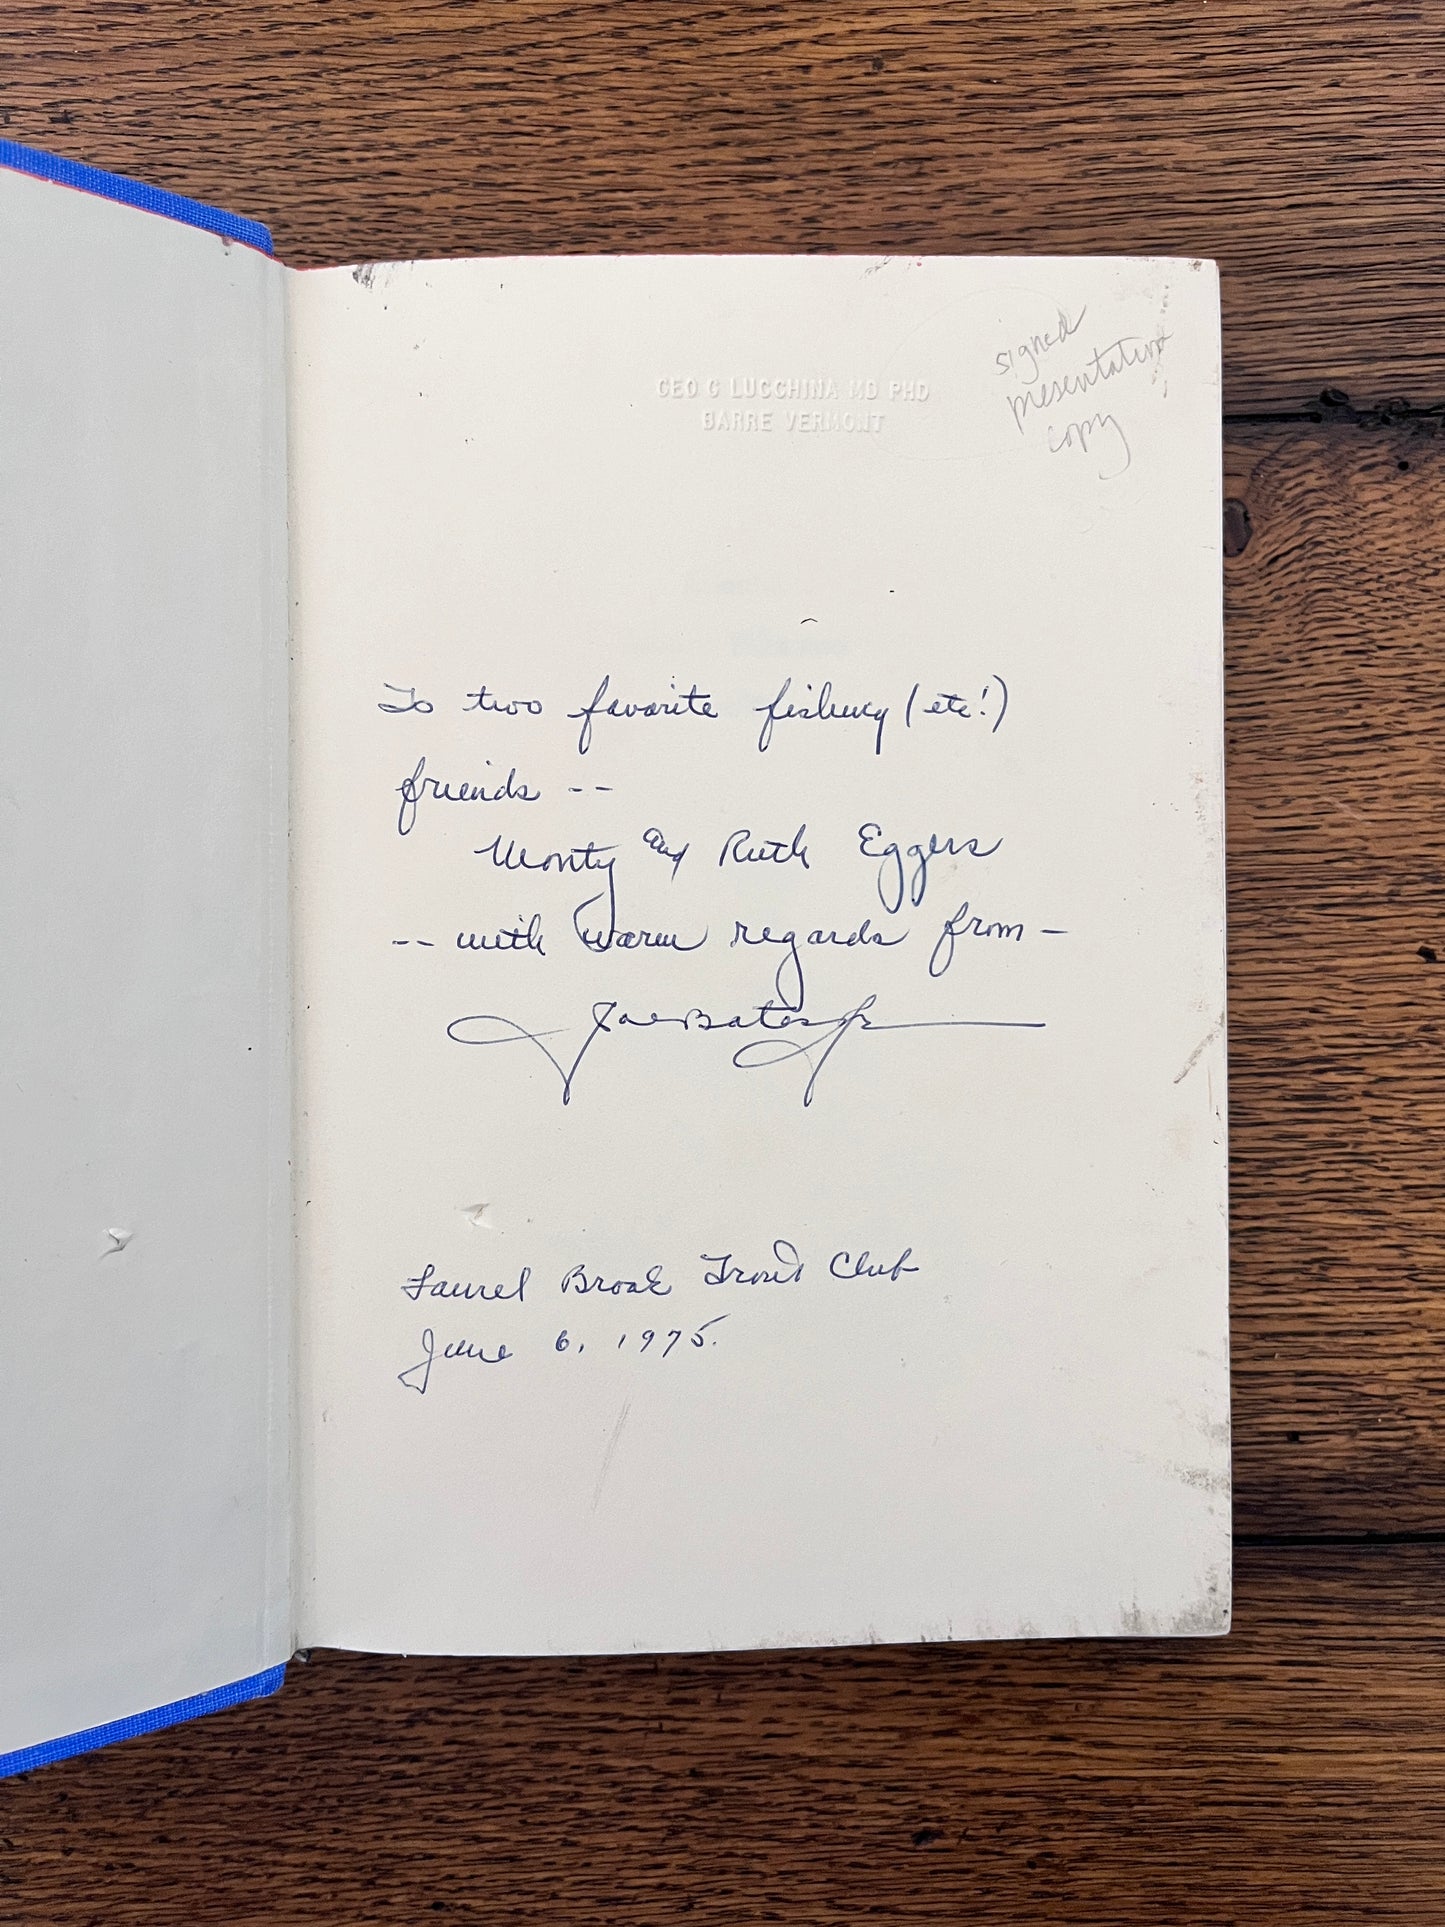 GEO G LUCCHINA MD PHD
BARRE VERMONT
signed
presentation
copy
To two favorite fishing (etc!)
friends --
Monty and Ruth Eggers
-- with warm regards from -
Joe Bates Jr
Laurel Brook Trout Club
June 6, 1975.